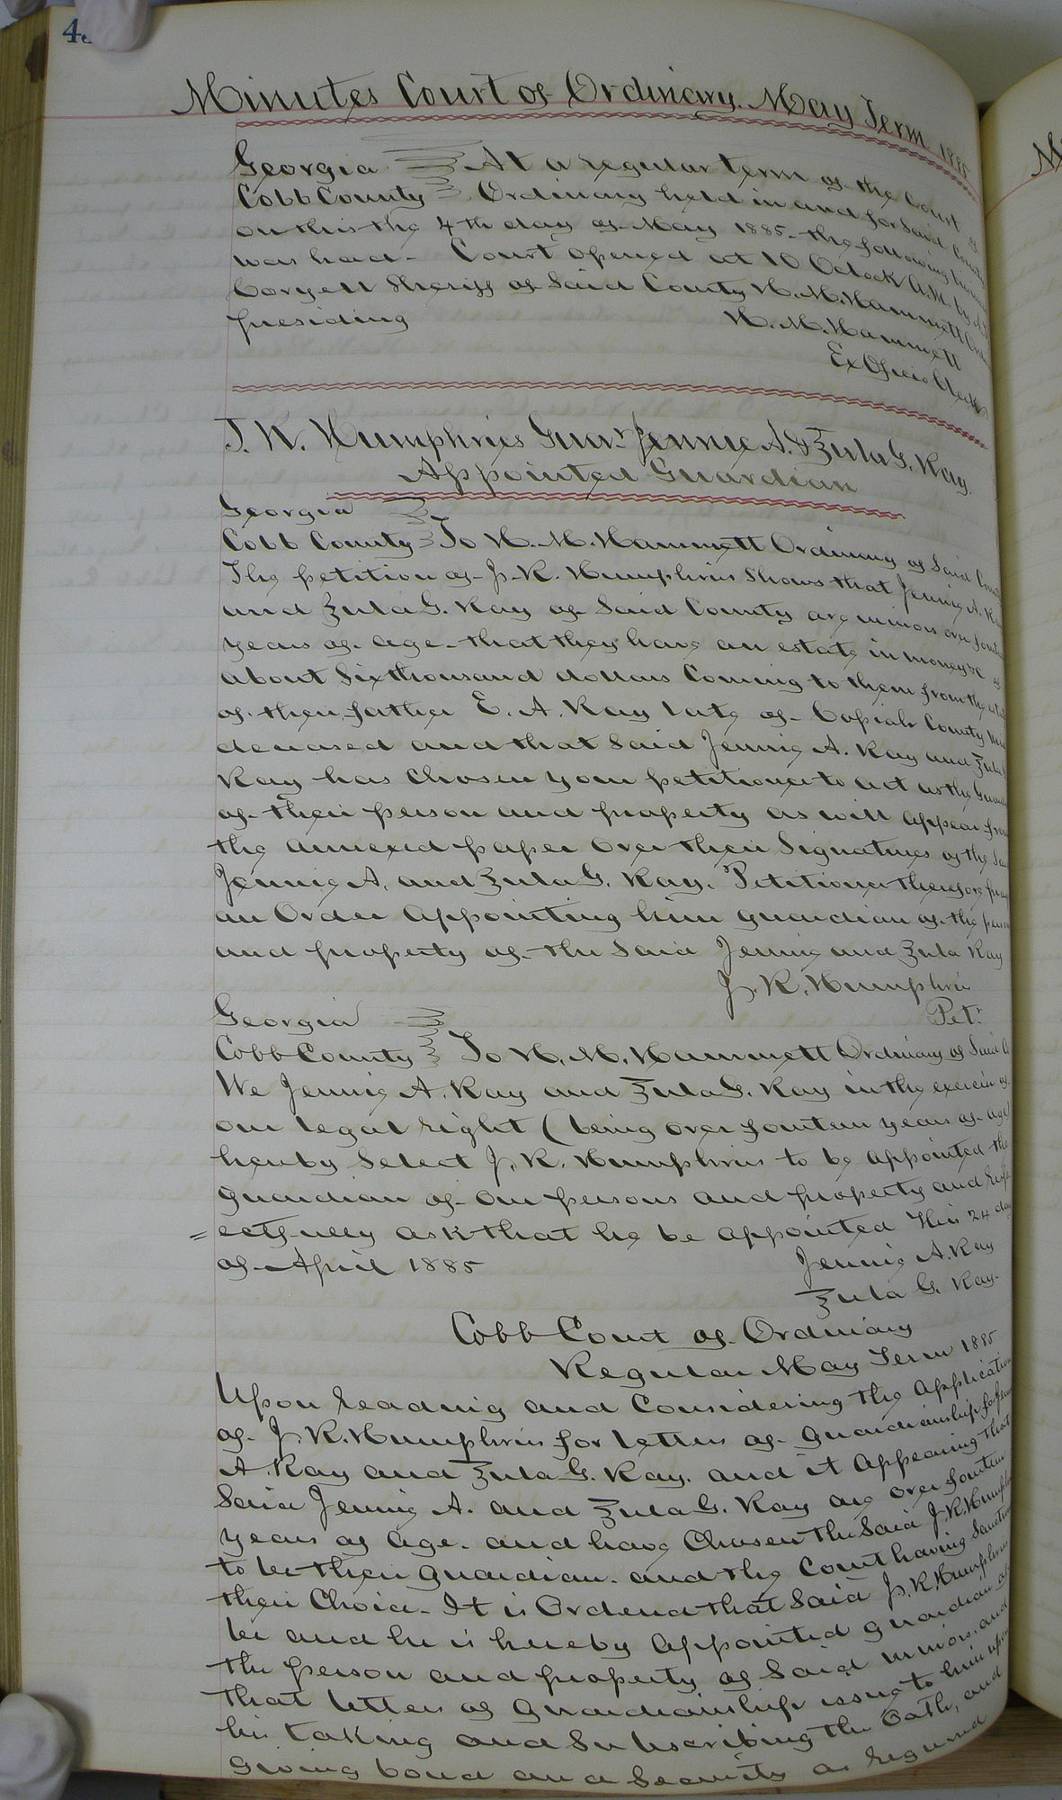 Minutes Court of Ordinary. May Term 1885
Georgia At a regular term of the Court of
Cobb County Ordinary held in and for Said County
on this the 4th day of May 1885. the following
was had. Court opened at 10 Oclock A.M. by
Sheriff of Said County H. M. Hammett
presiding H. M. Hammett
Ex Officio Clerk
J. R. Humphries Guar. Jennie A. & Zula G. Ray.
Appointed Guardian
Georgia
Cobb County To H. M. Hammett Ordinary of Said
The petition of J. R. Humphries Shows that Jennie A.
and Zula G. Ray of Said County are minors over
years of age. that they have an estate in money &c of
about Six thousand dollars Coming to them from the
of their father E. A. Ray late of Copiah County
deceased and that Said Jennie A. Ray and Zula
Ray has Chosen your petitioner to act as the
of their person and property as will appear from
the annexed paper over their Signatures of the
Jennie A. and Zula G. Ray. Petitioner therefore
an Order appointing him guardian of the
and property of the Said Jennie and Zula Ray
J. R. Humphries
Petr
Georgia
Cobb County To H. M. Hammett Ordinary of Said
We Jennie A. Ray and Zula G. Ray in the exercise of
our legal right (being over fourteen years of age)
hereby Select J. R. Humphries to be appointed the
guardian of our persons and property and resp
=ectfully ask that he be appointed This 24 day
of April 1885 Jennie A. Ray
Zula G. Ray.
Cobb Court of Ordinary
Regular May Term 1885
Upon reading and Considering the application
of J. R. Humphries for letters of guardianship for
A. Ray and Zula G. Ray. and it appearing that
Said Jennie A. and Zula G. Ray are over fourteen
years of age. and have Chosen the Said J. R.
to be their guardian. and the Court having
their Choice. It is Ordered that Said J. R. Humphries
be and he is hereby appointed guardian of
the person and property of Said minors. and
that letters of guardianship issue to him upon
his taking and Subscribing the Oath, and
giving bond and Security as required